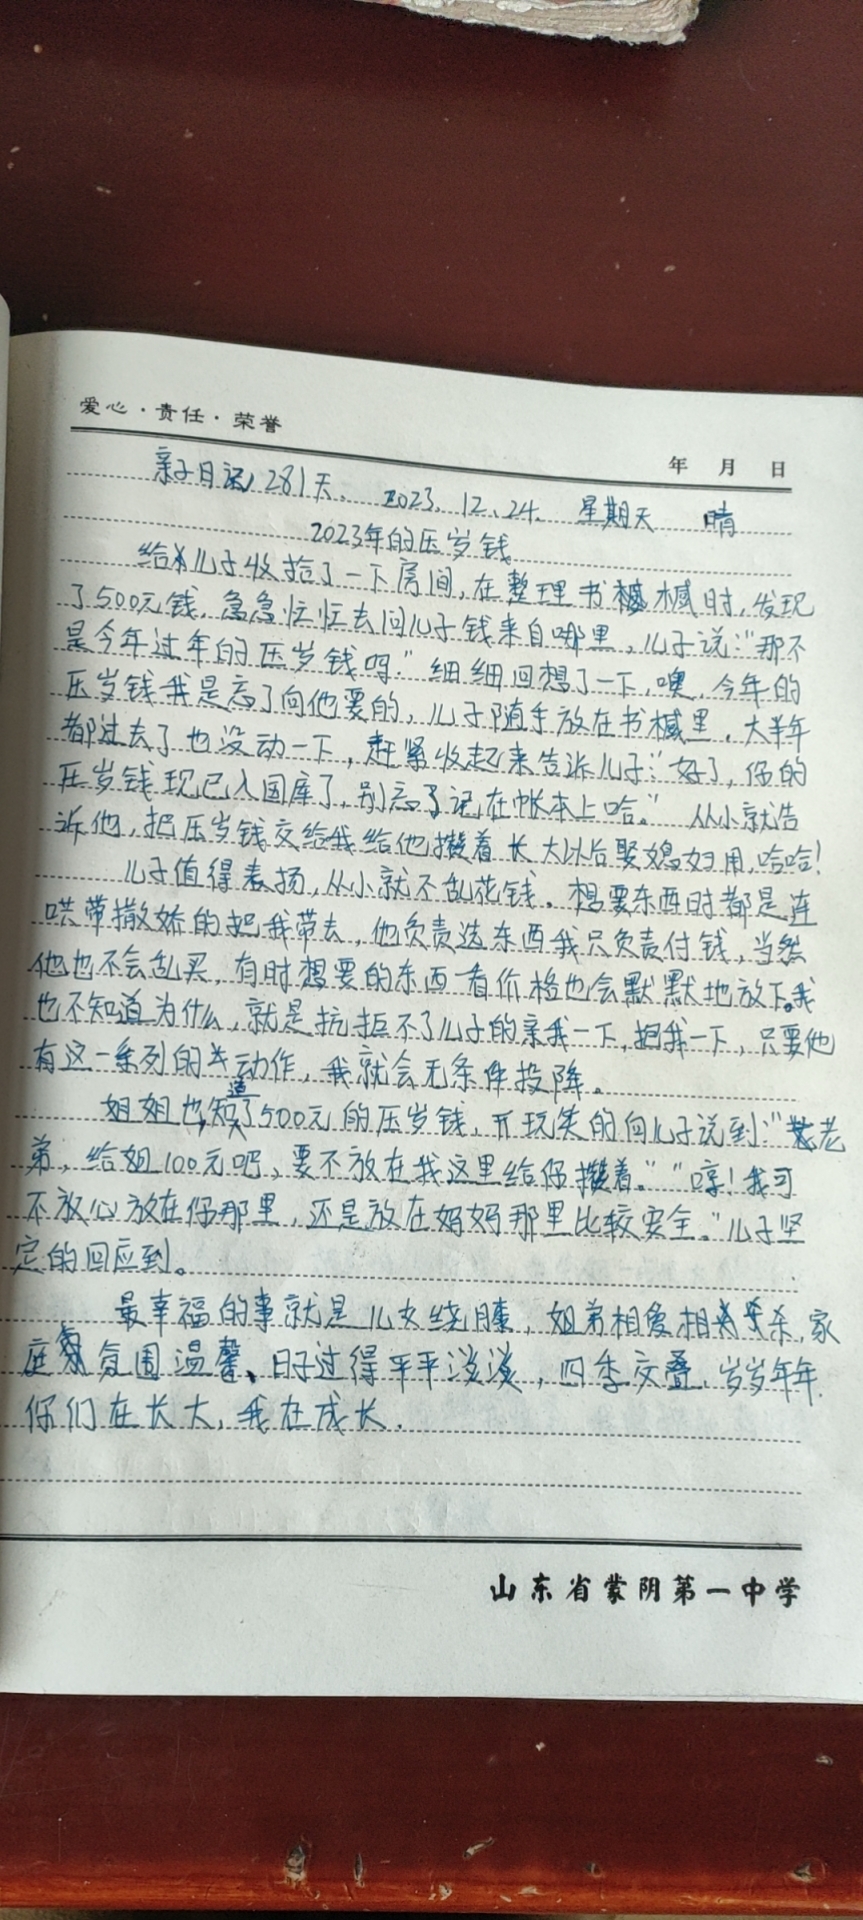 爱心·责任·荣誉
年 月 日
亲子日记281天. 2023.12.24. 星期天 晴
2023年的压岁钱
给儿子收拾了一下房间,在整理书橱时,发现
了500元钱,急急忙忙去问儿子钱来自哪里,儿子说:"那不
是今年过年的压岁钱吗."细细回想了一下,噢,今年的
压岁钱我是忘了向他要的,儿子随手放在书橱里,大半年
都过去了也没动一下,赶紧收起来告诉儿子:"好了,你的
压岁钱现已入国库了,别忘了记在帐本上哈。"从小就告
诉他,把压岁钱交给我给他攒着长大以后娶媳妇用,哈哈!
儿子值得表扬,从小就不乱花钱。想要东西时都是连
哄带撒娇的把我带去,他负责选东西我只负责付钱,当然
他也不会乱买,有时想要的东西看价格也会默默地放下。我
也不知道为什么,就是抗拒不了儿子的亲我一下,抱我一下,只要他
有这一系列的动作,我就会无条件投降。
姐姐也知道了500元的压岁钱,开玩笑的向儿子说到:"老
弟,给姐100元吧,要不放在我这里给你攒着。""哼!我可
不放心放在你那里,还是放在妈妈那里比较安全。"儿子坚
定的回应到。
最幸福的事就是儿女绕膝,姐弟相爱相杀,家
庭氛围温馨、日子过得平平淡淡,四季交叠,岁岁年年.
你们在长大,我在成长.
山东省蒙阴第一中学